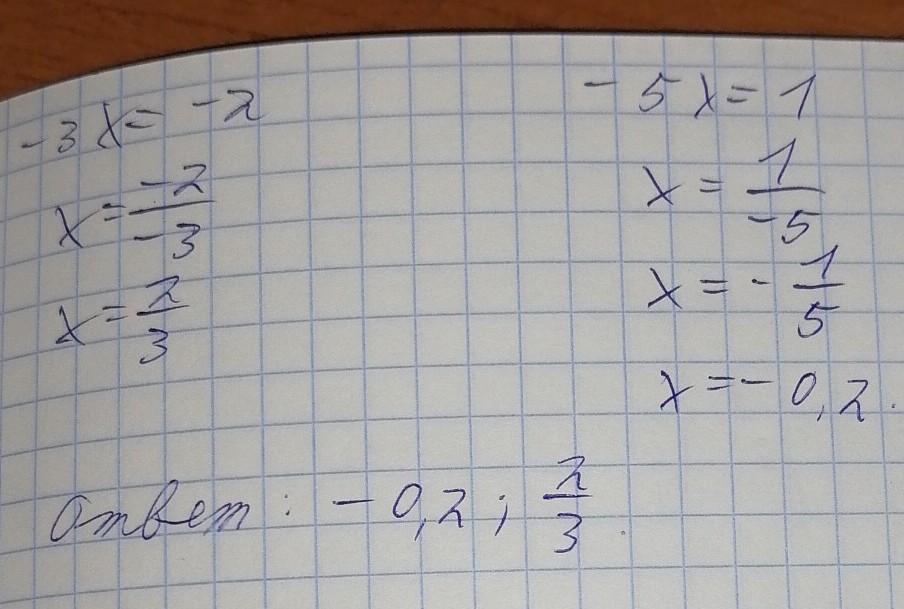 -3x = -2
x = -2/-3
x = 2/3
-5x = 1
x = 1/-5
x = -1/5
x = -0,2.
Ответ: -0,2; 2/3.